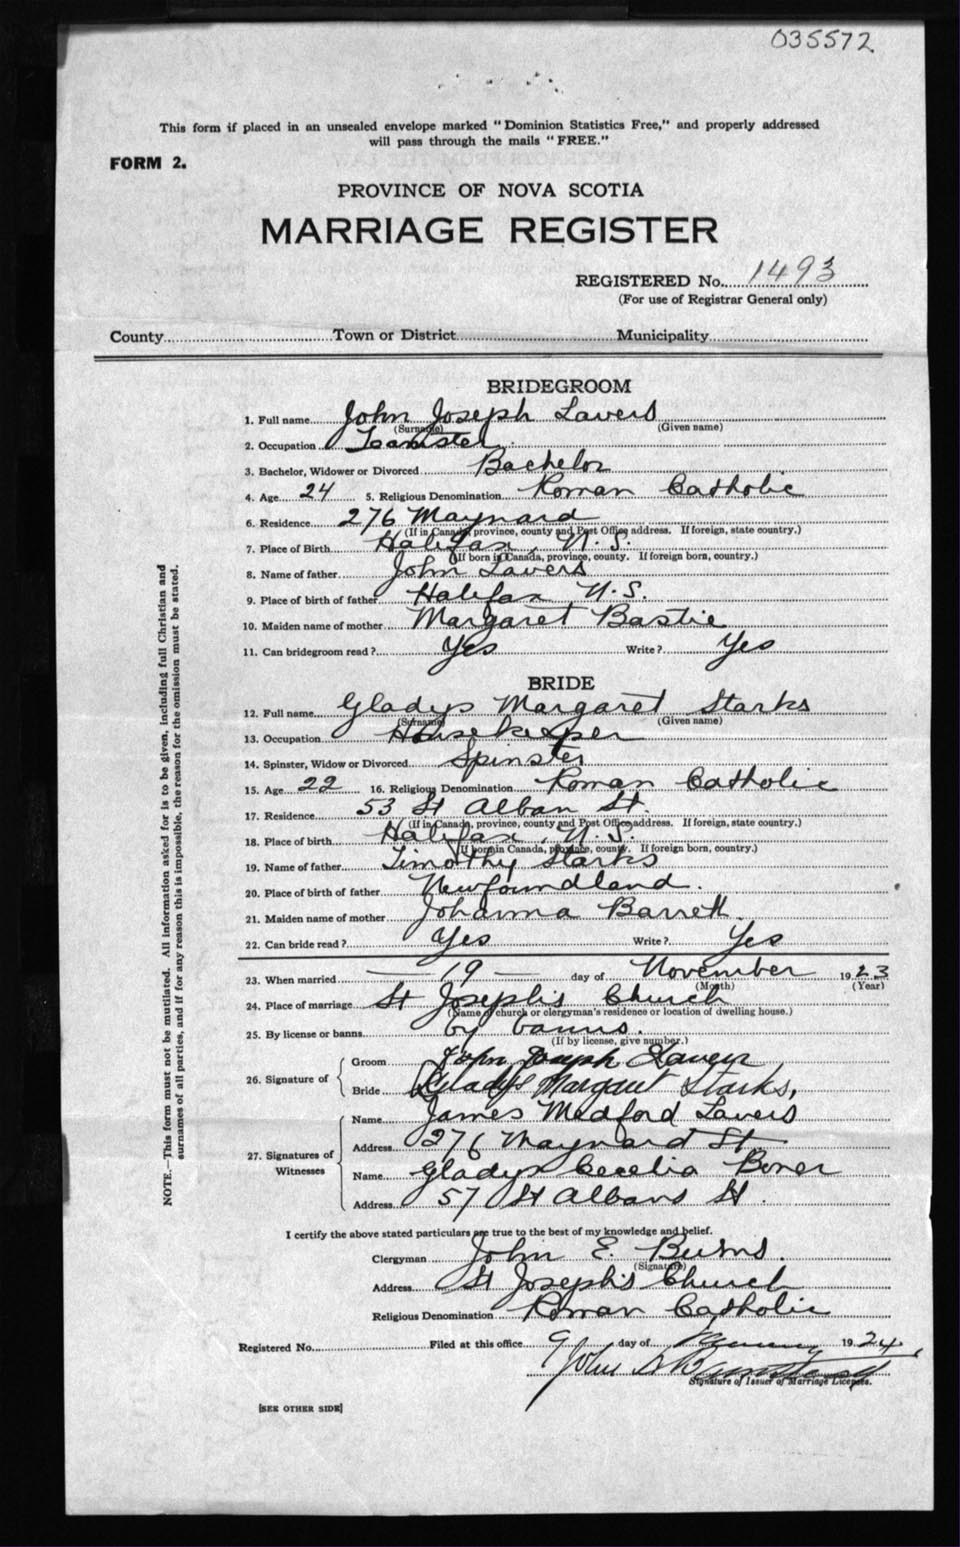 035572
This form if placed in an unsealed envelope marked "Dominion Statistics Free," and properly addressed
will pass through the mails "FREE."
FORM 2.
PROVINCE OF NOVA SCOTIA
MARRIAGE REGISTER
REGISTERED No. 1493
(For use of Registrar General only)
County Town or District Municipality
BRIDEGROOM
1. Full name John Joseph Lavers
(Surname) (Given name)
2. Occupation Teamster
3. Bachelor, Widower or Divorced Bachelor
4. Age 24 5. Religious Denomination Roman Catholic
6. Residence 276 Maynard
(If in Canada, province, county and Post Office address. If foreign, state country.)
7. Place of Birth Halifax, N.S.
(If born in Canada, province, county. If foreign born, country.)
8. Name of father John Lavers
9. Place of birth of father Halifax N.S.
10. Maiden name of mother Margaret Bastie
11. Can bridegroom read? Yes Write? Yes
BRIDE
12. Full name Gladys Margaret Starks
(Surname) (Given name)
13. Occupation Housekeeper
14. Spinster, Widow or Divorced Spinster
15. Age 22 16. Religious Denomination Roman Catholic
17. Residence 53 St Alban St.
(If in Canada, province, county and Post Office address. If foreign, state country.)
18. Place of birth Halifax, N.S.
(If born in Canada, province, county. If foreign born, country.)
19. Name of father Timothy Starks
20. Place of birth of father Newfoundland.
21. Maiden name of mother Johanna Barrett.
22. Can bride read? Yes Write? Yes
23. When married 19 day of November 1923
(Month) (Year)
24. Place of marriage St Joseph's Church
(Name of church or clergyman's residence or location of dwelling house.)
25. By license or banns by banns.
(If by license, give number.)
26. Signature of
Groom John Joseph Lavers
Bride Gladys Margaret Starks,
27. Signatures of Witnesses
Name James Medford Lavers
Address 276 Maynard St
Name Gladys Cecelia Boner
Address 57 St Albans St.
I certify the above stated particulars are true to the best of my knowledge and belief.
Clergyman John E. Burns.
(Signature)
Address St Joseph's Church
Religious Denomination Roman Catholic
Registered No. Filed at this office 9 day of January 1924,
John
Signature of Issuer of Marriage Licenses.
[SEE OTHER SIDE]
NOTE.—This form must not be mutilated. All information asked for is to be given, including full Christian and
surnames of all parties, and if for any reason this is impossible, the reason for the omission must be stated.